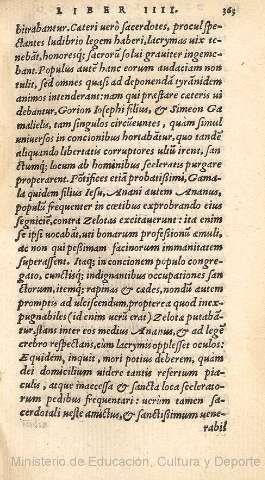 LIBER IIII. 363
bitrabantur. Cæteri uerò sacerdotes, procul spe-
ctantes ludibrio legem haberi, lacrymas uix te-
nebāt, honoresq; sacrorū solui grauiter ingemє-
bant. Populus autē hanc eorum audaciam non
tulit, sed omnes quasi ad deponendā tyrānidem
animos intenderant: nam qui præstare cæteris ui
debantur, Gorion Iosephi filius, & Simeon Ga
malielis, tam singulos circūeuntes, quàm simul
uniuersos in concionibus hortabātur, quo tandē
aliquando libertatis corruptores ulū irent, san
ctumq; locum ab hominibus sceleratis purgare
properarent. Pōtifices etiā probatissimi, Gama-
la quidem filius Iesu, Anani autem Ananus,
populū frequenter in cœtibus exprobrando eius
segniciē, contra Zelotas excitauerunt: ita enim
se ipsi uocabāt, uti bonarum professionū æmuli,
ac non qui pessimam facinorum immanitatem
superassent. Itaq; in concionem populo congre-
gato, cunctisq; indignantibus occupationes san
ctorum, itemq; rapinas & cædes, nondū autem
promptis ad ulciscendum, propterea quòd inex-
pugnabiles (id enim uerū erat) Zelotæ putabā-
tur, stans inter eos medius Ananus, & ad legē
crebro respectans, cum lacrymis opplesset oculos:
Equidem, inquit, mori potius deberem, quàm
dei domicilium uidere tantis refertum pia
culis, atque inaccessa & sancta loca scelerato-
rum pedibus frequentari: uerùm tamen sa-
cerdotali ueste amictus, & sanctissimum uene-
rabil
Ministerio de Educación, Cultura y Deporte